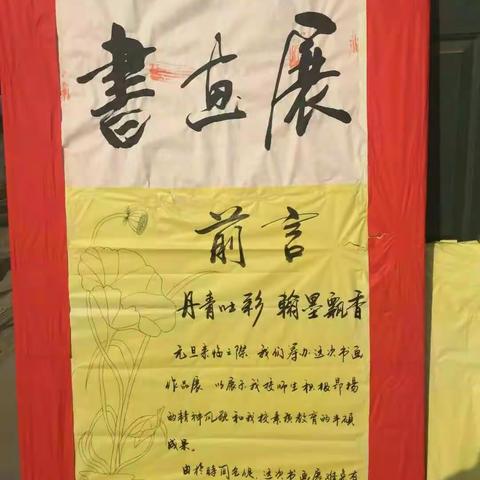 書画展
前言
丹青吐彩 翰墨飘香
元旦来临之际 我们举办这次书画
作品展 以展示我校师生积极昂扬
的精神风貌和我校素质教育的丰硕
成果。
由于时间仓促，这次书画展难免有